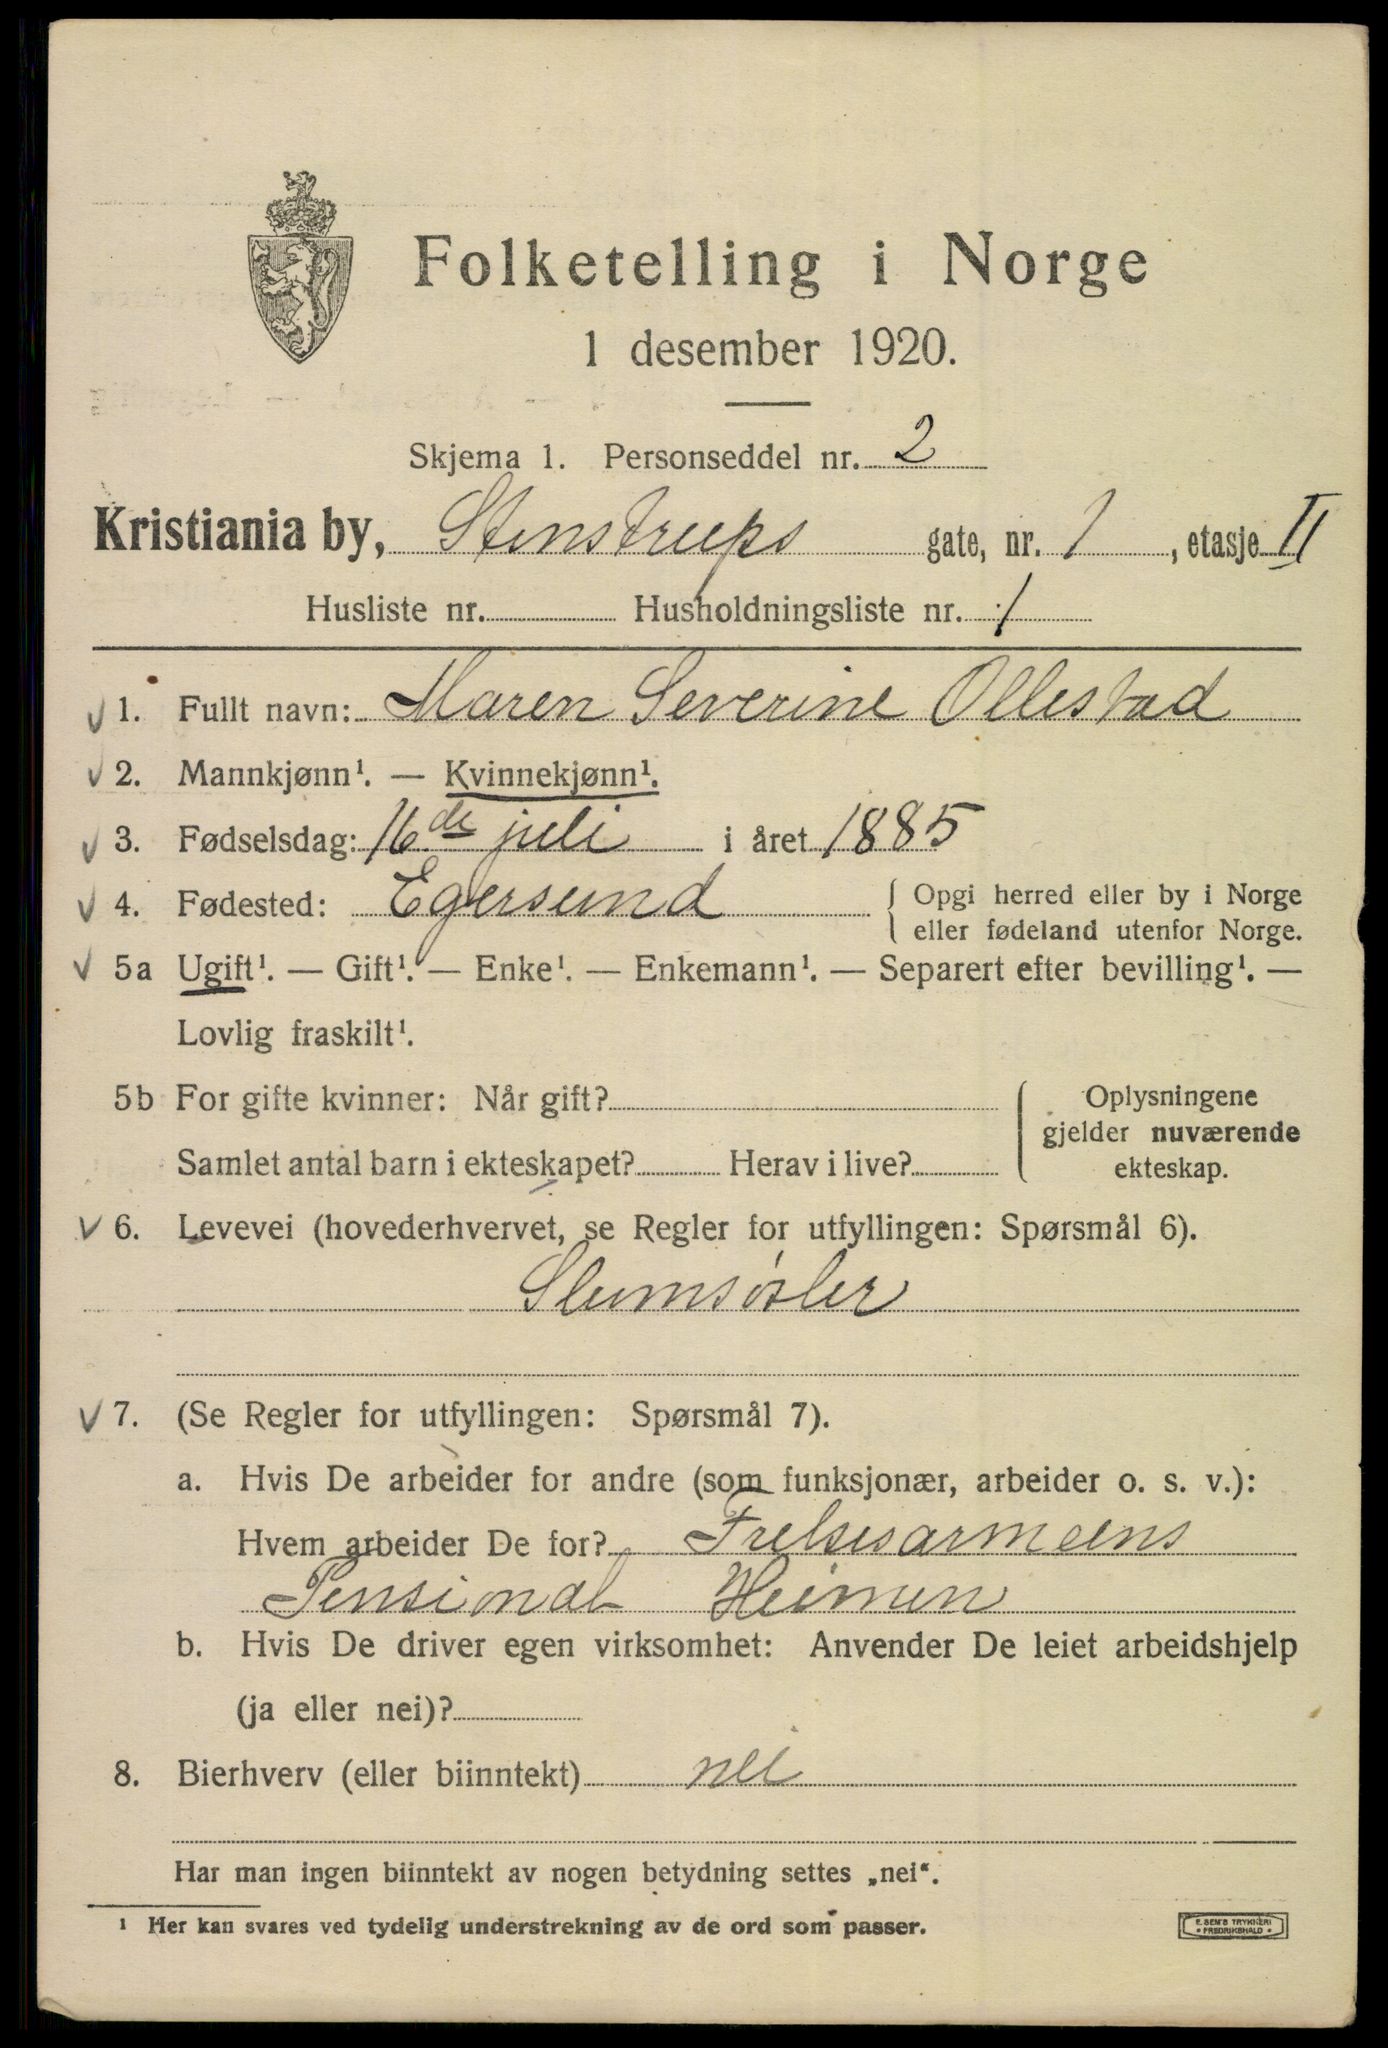 Folketelling i Norge
1 desember 1920.
Skjema 1. Personseddel nr. 2
Kristiania by, Stenstrups gate, nr. 1, etasje II
Husliste nr. Husholdningsliste nr. 1
1. Fullt navn: Maren Severine Ollestad
2. Mannkjønn¹. — Kvinnekjønn¹.
3. Fødselsdag: 16de juli i året 1885
4. Fødested: Egersund { Opgi herred eller by i Norge
eller fødeland utenfor Norge.
5a Ugift¹. — Gift¹. — Enke¹. — Enkemann¹. — Separert efter bevilling¹. —
Lovlig fraskilt¹.
5b For gifte kvinner: Når gift? Oplysningene
gjelder nuværende
Samlet antal barn i ekteskapet? Herav i live? ekteskap.
6. Levevei (hovederhvervet, se Regler for utfyllingen: Spørsmål 6).
Slumsøster
7. (Se Regler for utfyllingen: Spørsmål 7).
a. Hvis De arbeider for andre (som funksjonær, arbeider o. s. v.):
Hvem arbeider De for? Frelsesarmeens
Pensionat Heimen
b. Hvis De driver egen virksomhet: Anvender De leiet arbeidshjelp
(ja eller nei)?
8. Bierhverv (eller biinntekt) nei
Har man ingen biinntekt av nogen betydning settes „nei“.
¹ Her kan svares ved tydelig understrekning av de ord som passer.
E. SEM'S TRYKKERI
• FREDRIKSHALD •